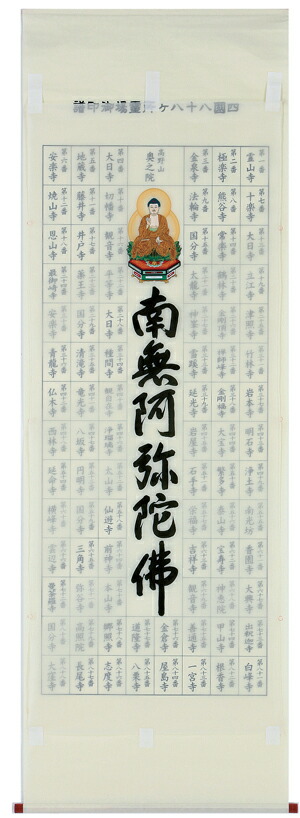 四國八十八ヶ所靈場御印譜
第一番 霊山寺
第二番 極楽寺
第三番 金泉寺
高野山 奥之院
第四番 大日寺
第五番 地蔵寺
第六番 安楽寺
第七番 十楽寺
第八番 熊谷寺
第九番 法輪寺
第十番 切幡寺
第十一番 藤井寺
第十二番 焼山寺
第十三番 大日寺
第十四番 常楽寺
第十五番 国分寺
第十六番 観音寺
第十七番 井戸寺
第十八番 恩山寺
第十九番 立江寺
第二十番 鶴林寺
第二十一番 太龍寺
第二十二番 平等寺
第二十三番 薬王寺
第二十四番 最御崎寺
第二十五番 津照寺
第二十六番 金剛頂寺
第二十七番 神峯寺
第二十八番 大日寺
第二十九番 国分寺
第三十番 安楽寺
第三十一番 竹林寺
第三十二番 禅師峰寺
第三十三番 雪蹊寺
第三十四番 種間寺
第三十五番 清滝寺
第三十六番 青龍寺
第三十七番 岩本寺
第三十八番 金剛福寺
第三十九番 延光寺
第四十番 観自在寺
第四十一番 竜光寺
第四十二番 仏木寺
第四十三番 明石寺
第四十四番 大宝寺
第四十五番 岩屋寺
第四十六番 浄瑠璃寺
第四十七番 八坂寺
第四十八番 西林寺
第四十九番 浄土寺
第五十番 繁多寺
第五十一番 石手寺
第五十二番 太山寺
第五十三番 円明寺
第五十四番 延命寺
第五十五番 南光坊
第五十六番 泰山寺
第五十七番 栄福寺
第五十八番 仙遊寺
第五十九番 国分寺
第六十番 横峰寺
第六十一番 香園寺
第六十二番 宝寿寺
第六十三番 吉祥寺
第六十四番 前神寺
第六十五番 三角寺
第六十六番 雲辺寺
第六十七番 大興寺
第六十八番 神恵院
第六十九番 観音寺
第七十番 本山寺
第七十一番 弥谷寺
第七十二番 曼荼羅寺
第七十三番 出釈迦寺
第七十四番 甲山寺
第七十五番 善通寺
第七十六番 金倉寺
第七十七番 道隆寺
第七十八番 郷照寺
第七十九番 高照院
第八十番 国分寺
第八十一番 白峰寺
第八十二番 根香寺
第八十三番 一宮寺
第八十四番 屋島寺
第八十五番 八栗寺
第八十六番 志度寺
第八十七番 長尾寺
第八十八番 大窪寺
南無阿弥陀佛